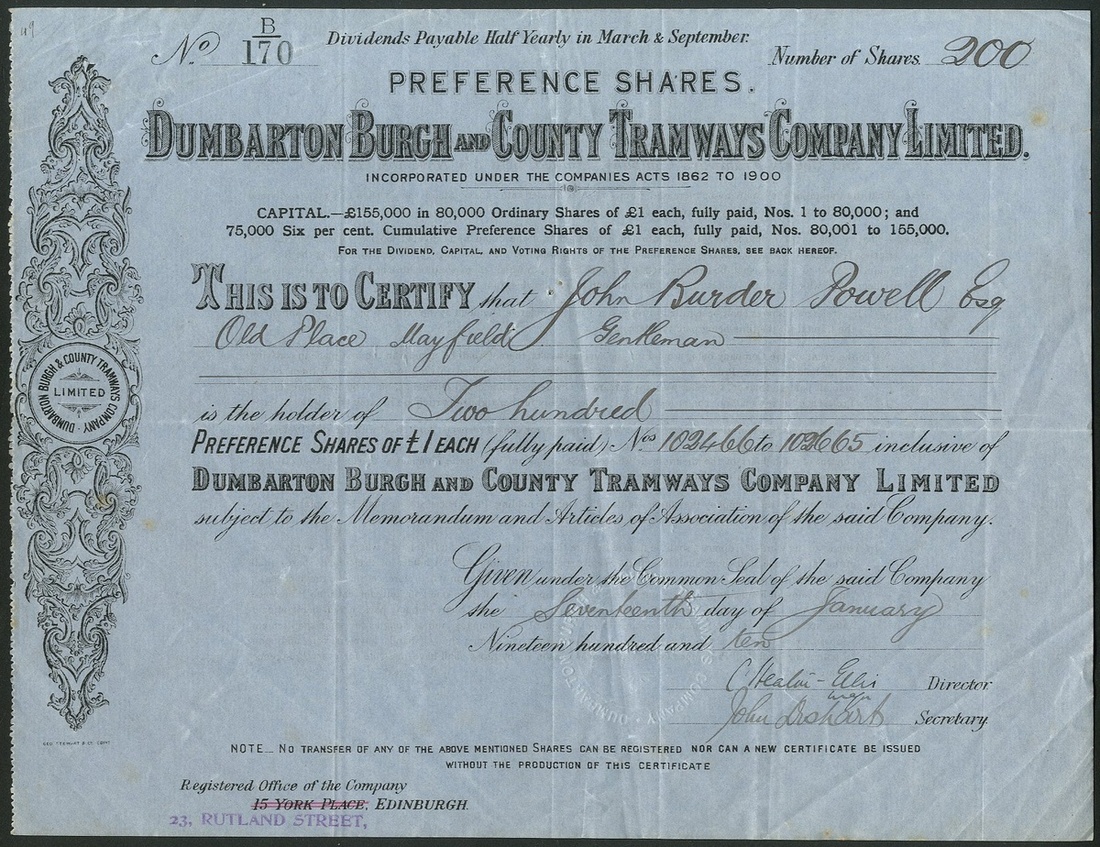 No. B/170
Dividends Payable Half Yearly in March & September.
Number of Shares 200
PREFERENCE SHARES.
DUMBARTON BURGH AND COUNTY TRAMWAYS COMPANY LIMITED.
INCORPORATED UNDER THE COMPANIES ACTS 1862 TO 1900
CAPITAL.—£155,000 in 80,000 Ordinary Shares of £1 each, fully paid, Nos. 1 to 80,000; and
75,000 Six per cent. Cumulative Preference Shares of £1 each, fully paid, Nos. 80,001 to 155,000.
FOR THE DIVIDEND, CAPITAL, AND VOTING RIGHTS OF THE PREFERENCE SHARES, SEE BACK HEREOF.
THIS IS TO CERTIFY that John Burder Powell Esq
Old Place Mayfield Gentleman
DUMBARTON BURGH & COUNTY TRAMWAYS COMPANY
LIMITED
is the holder of Two hundred
PREFERENCE SHARES OF £1 EACH (fully paid) Nos 102466 to 102665 inclusive of
DUMBARTON BURGH AND COUNTY TRAMWAYS COMPANY LIMITED
subject to the Memorandum and Articles of Association of the said Company.
Given under the Common Seal of the said Company
the Seventeenth day of January
Nineteen hundred and ten
C Heaton-Ellis Director
John Dishart Secretary.
NOTE — NO TRANSFER OF ANY OF THE ABOVE MENTIONED SHARES CAN BE REGISTERED NOR CAN A NEW CERTIFICATE BE ISSUED
WITHOUT THE PRODUCTION OF THIS CERTIFICATE
Registered Office of the Company
15 YORK PLACE, EDINBURGH.
23, RUTLAND STREET,